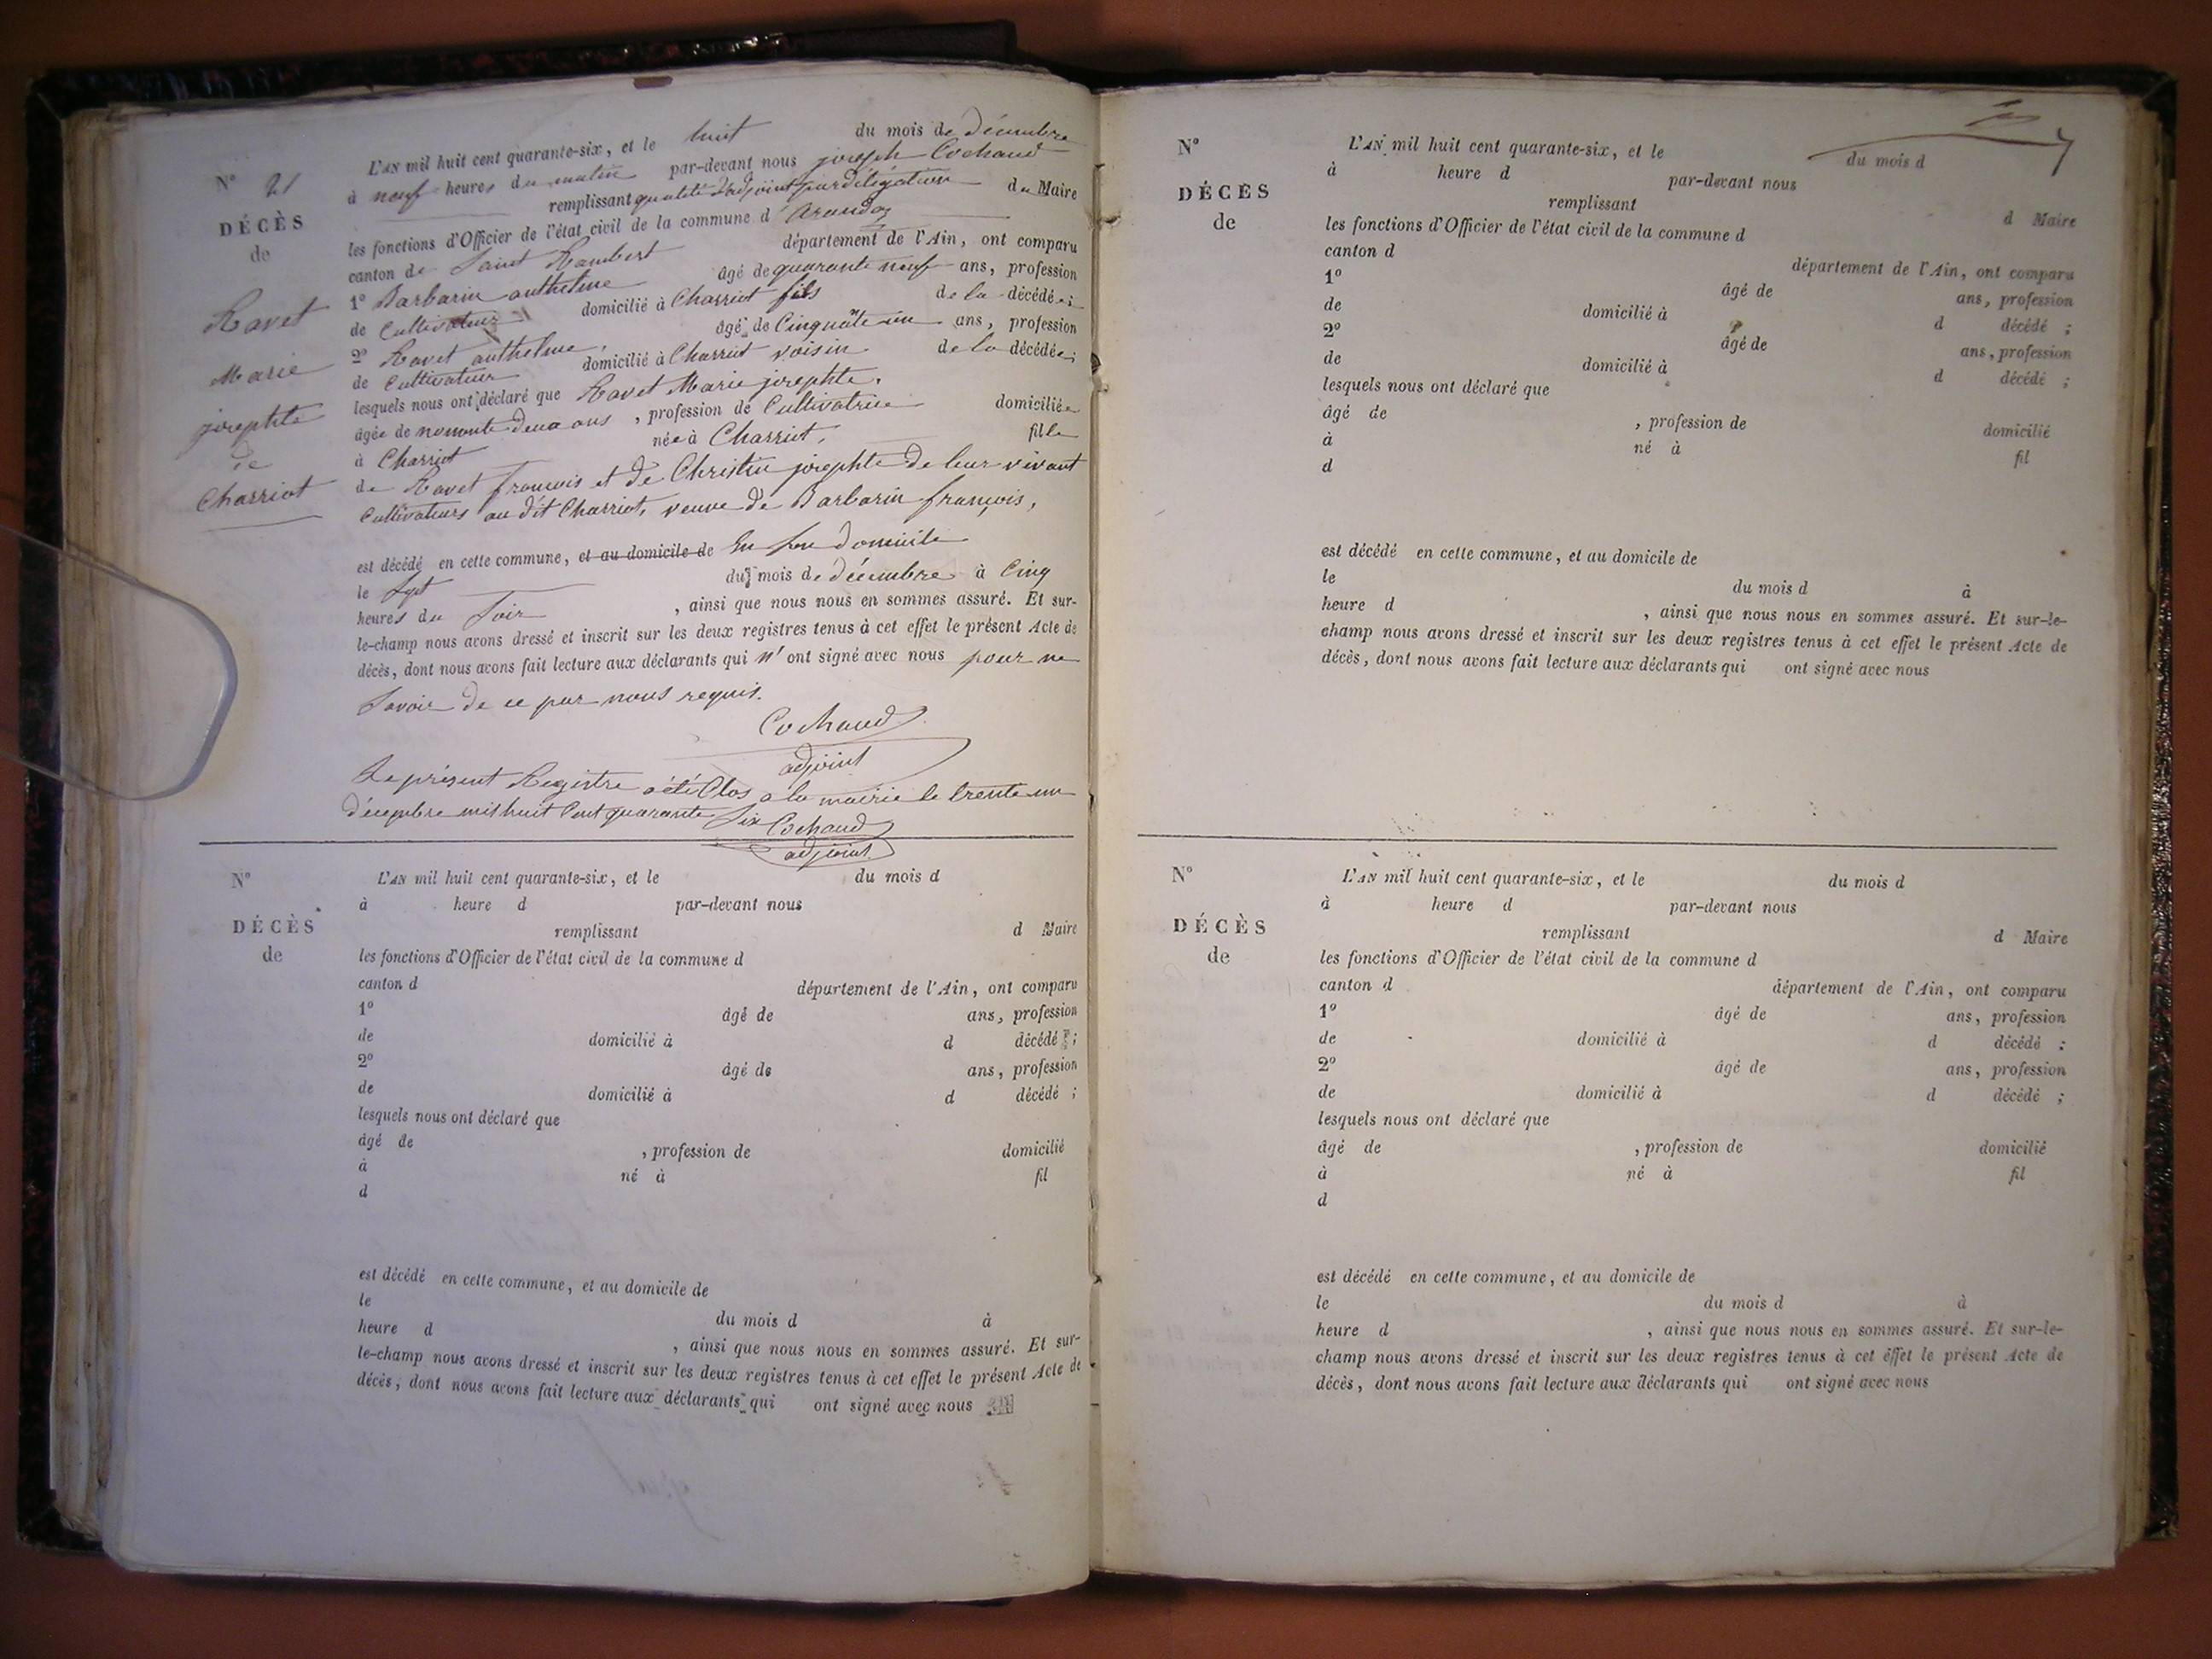 N° 21
DÉCÈS
de
Ravet
Marie
josephte
de
Charriot
L'AN mil huit cent quarante-six, et le huit du mois de décembre
à neuf heures du matin par-devant nous joseph Cochaud
remplissant qualité d'adjoint par délégation du Maire
les fonctions d'Officier de l'état civil de la commune d'Arandaz
canton de Saint Rambert département de l'Ain, ont comparu
1° Barbarin anthelme âgé de quarante neuf ans, profession
de Cultivateur domicilié à Charriot fils de la décédée;
2° Ravet anthelme, âgé de Cinquate un ans, profession
de Cultivateur domicilié à Charriot voisin de la décédée;
lesquels nous ont déclaré que Ravet Marie josephte,
âgée de nonante deux ans, profession de Cultivatrice domiciliée
à Charriot née à Charriot, fille
de Ravet françois et de Christin josephte de leur vivant
Cultivateurs au dit Charriot, veuve de Barbarin françois,
est décédé en cette commune, et au domicile de En son domicile
le Sept du mois de décembre à Cinq
heures du Soir, ainsi que nous nous en sommes assuré. Et sur-
le-champ nous avons dressé et inscrit sur les deux registres tenus à cet effet le présent Acte de
décès, dont nous avons fait lecture aux déclarants qui n'ont signé avec nous pour ne
Savoir de ce par nous requis.
Cochaud
adjoint
Le présent Registre a été Clos a la mairie le trente un
décembre mil huit Cent quarante Six Cochaud
adjoint
N°
DÉCÈS
de
L'AN mil huit cent quarante-six, et le du mois d
à heure d par-devant nous
remplissant d Maire
les fonctions d'Officier de l'état civil de la commune d
canton d département de l'Ain, ont comparu
1° âgé de ans, profession
de domicilié à d décédé ;
2° âgé de ans, profession
de domicilié à d décédé ;
lesquels nous ont déclaré que
âgé de , profession de domicilié
à né à fil
d
est décédé en cette commune, et au domicile de
le du mois d à
heure d , ainsi que nous nous en sommes assuré. Et sur-
le-champ nous avons dressé et inscrit sur les deux registres tenus à cet effet le présent Acte de
décès, dont nous avons fait lecture aux déclarants qui ont signé avec nous
N°
DÉCÈS
de
L'AN mil huit cent quarante-six, et le du mois d
à heure d par-devant nous
remplissant d Maire
les fonctions d'Officier de l'état civil de la commune d
canton d département de l'Ain, ont comparu
1° âgé de ans, profession
de domicilié à d décédé ;
2° âgé de ans, profession
de domicilié à d décédé ;
lesquels nous ont déclaré que
âgé de , profession de domicilié
à né à fil
d
est décédé en cette commune, et au domicile de
le du mois d à
heure d , ainsi que nous nous en sommes assuré. Et sur-le-
champ nous avons dressé et inscrit sur les deux registres tenus à cet effet le présent Acte de
décès, dont nous avons fait lecture aux déclarants qui ont signé avec nous
N°
DÉCÈS
de
L'AN mil huit cent quarante-six, et le du mois d
à heure d par-devant nous
remplissant d Maire
les fonctions d'Officier de l'état civil de la commune d
canton d département de l'Ain, ont comparu
1° âgé de ans, profession
de domicilié à d décédé :
2° âgé de ans, profession
de domicilié à d décédé ;
lesquels nous ont déclaré que
âgé de , profession de domicilié
à né à fil
d
est décédé en cette commune, et au domicile de
le du mois d à
heure d , ainsi que nous nous en sommes assuré. Et sur-le-
champ nous avons dressé et inscrit sur les deux registres tenus à cet effet le présent Acte de
décès, dont nous avons fait lecture aux déclarants qui ont signé avec nous